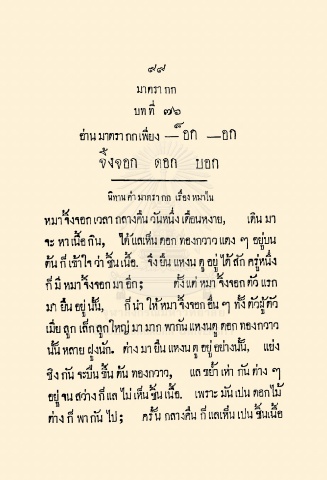 ๙๙
มาตรา กก
บท ที่ ๗๖
อ่าน มาตรา กก เพียง —็อก —อก
จิ้งจอก ดอก บอก
นิทาน คำ มาตรา กก เรื่อง หมาใน
หมา จิ้งจอก เวลา กลางคืน วันหนึ่ง เดือนหงาย, เดิน มา
จะ หา เนื้อ กิน, ได้ แลเห็น ดอก ทองกวาว แดง ๆ อยู่บน
ต้น ก็ เข้าใจ ว่า ชิ้นเนื้อ. จึ่ง ยืน แหงน ดู อยู่ ได้ สัก ครู่หนึ่ง
ก็ มี หมา จิ้งจอก มา อีก; ตั้ง แต่ หมา จิ้งจอก ตัว แรก
มา ยืน อยู่ นั้น, ก็ นำ ให้ หมา จิ้งจอก อื่น ๆ ทั้ง ตัวผู้ ตัว
เมีย ลูก เล็ก ลูก ใหญ่ มา มาก พา กัน แหงน ดู ดอก ทองกวาว
นั้น หลาย ฝูง นัก. ต่าง มา ยืน แหงน ดู อยู่ อย่างนั้น, แย่ง
ชิง กัน จะ ปืน ขึ้น ต้น ทองกวาว, แล ขย้ำ เห่า กัน ต่าง ๆ
อยู่ จน สว่าง ก็ แล ไม่ เห็น ชิ้น เนื้อ. เพราะ มัน เปน ดอกไม้
ต่าง ก็ พา กัน ไป; ครั้น กลางคืน ก็ แลเห็น เปน ชิ้นเนื้อ